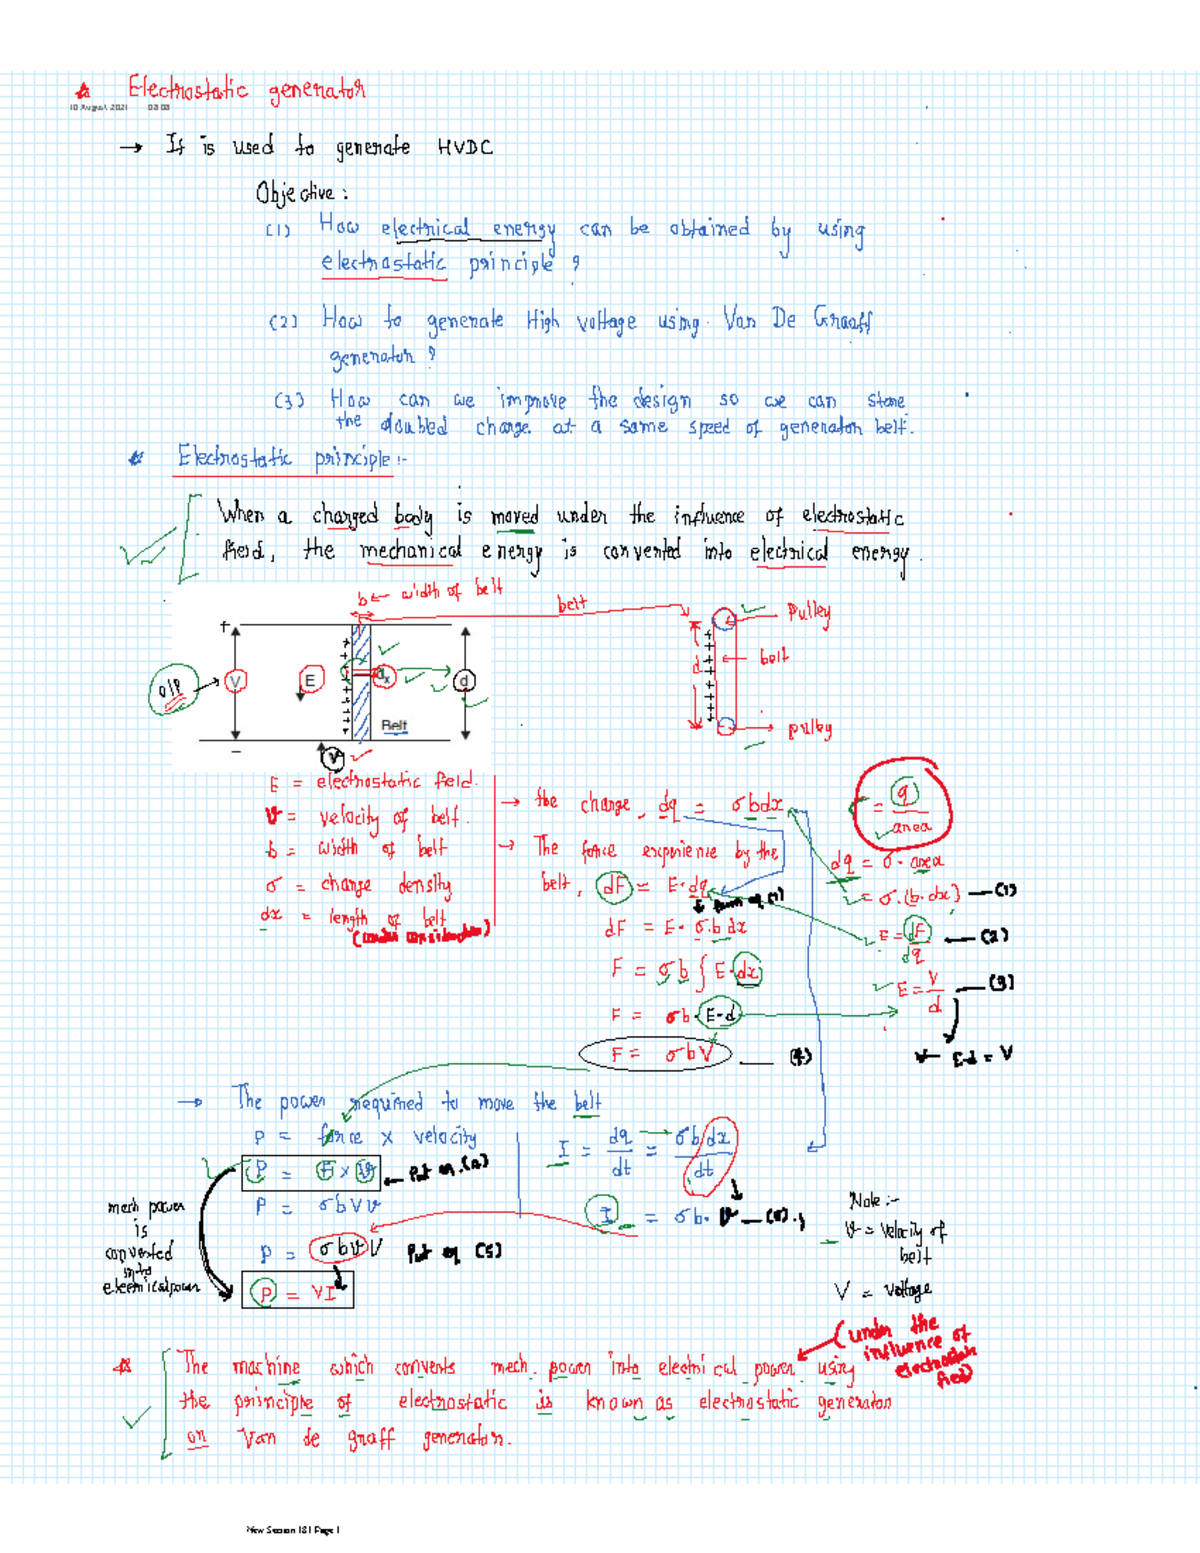 Electrostatic generator
10 August 2021 08:08
→ It is used to generate HVDC
Objective :
(1) How electrical energy can be obtained by using
electrostatic principle ?
(2) How to generate High voltage using Van De Graaff
generator ?
(3) How can we improve the design so we can store
the doubled charge at a same speed of generator belt.
Electrostatic principle :-
When a charged body is moved under the influence of electrostatic
field, the mechanical energy is converted into electrical energy.
b ← width of belt
belt
Pulley
belt
pulley
+
O/P → V
E
dx
d
Belt
−
v
d
E = electrostatic field.
v = velocity of belt.
b = width of belt
σ = charge density
dx = length of belt
(under consideration)
→ the charge, dq = σbdx
→ The force experience by the
belt, dF = E·dq
from eq (1)
dF = E· σ.b dx
F = σb ∫ E·dx
F = σb· E·d
F = σbV — (4)
= q / area
dq = σ· area
= σ.(b·dx) — (1)
E = dF / dq — (2)
E = V / d — (3)
E·d = V
→ The power required to move the belt
P = force x velocity
P = F x v ← Put eq. (4)
P = σbVv
P = σbvV Put eq (5)
P = VI
mech power
is
converted
into
electrical power
I = dq/dt = σb dx/dt
I = σb· v — (5)
Note :-
v = velocity of
belt
V = voltage
(under the
influence of
electrostatic
field)
The machine which converts mech. power into electrical power using
the prinicple of electrostatic is known as electrostatic generator
or Van de graff generator.
New Section 18 Page 1